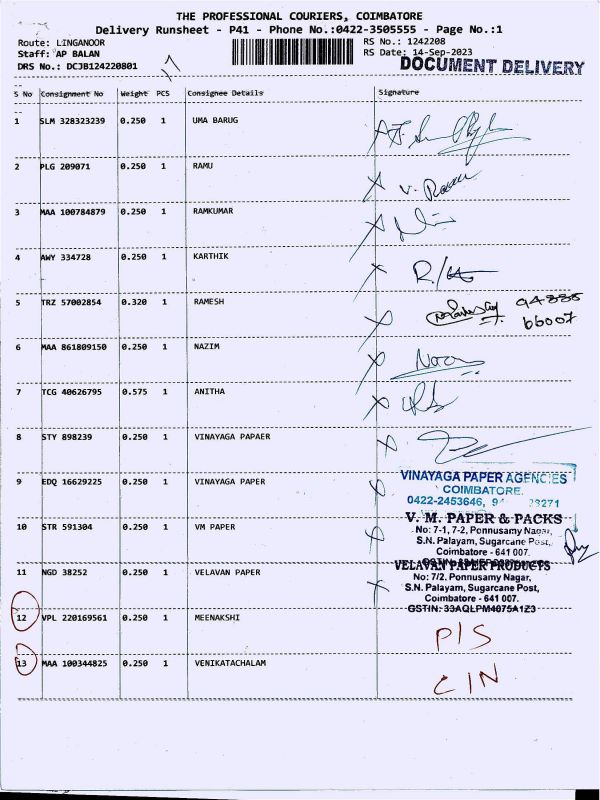 THE PROFESSIONAL COURIERS, COIMBATORE
Delivery Runsheet - P41 - Phone No.:0422-3505555 - Page No.:1
Route: LINGANOOR RS No.: 1242208
Staff: AP BALAN RS Date: 14-Sep-2023
DRS No.: DCJB124220801 DOCUMENT DELIVERY
S No Consignment No Weight PCS Consignee Details Signature
1 SLM 328323239 0.250 1 UMA BARUG
2 PLG 209071 0.250 1 RAMU
3 MAA 100784879 0.250 1 RAMKUMAR
4 AWY 334728 0.250 1 KARTHIK
5 TRZ 57002854 0.320 1 RAMESH 94885
66007
6 MAA 861809150 0.250 1 NAZIM
7 TCG 40626795 0.575 1 ANITHA
8 STY 898239 0.250 1 VINAYAGA PAPAER
9 EDQ 16629225 0.250 1 VINAYAGA PAPER VINAYAGA PAPER AGENCIES
COIMBATORE.
0422-2453646,
10 STR 591304 0.250 1 VM PAPER V. M. PAPER & PACKS
No: 7-1, 7-2, Ponnusamy Nagar,
S.N. Palayam, Sugarcane Post,
Coimbatore - 641 007.
11 NGD 38252 0.250 1 VELAVAN PAPER VELAVAN PAPER PRODUCTS
No: 7/2, Ponnusamy Nagar,
S.N. Palayam, Sugarcane Post,
Coimbatore - 641 007.
GSTIN: 33AQLPM4075A1Z3
12 VPL 220169561 0.250 1 MEENAKSHI P/S
13 MAA 100344825 0.250 1 VENIKATACHALAM C/N